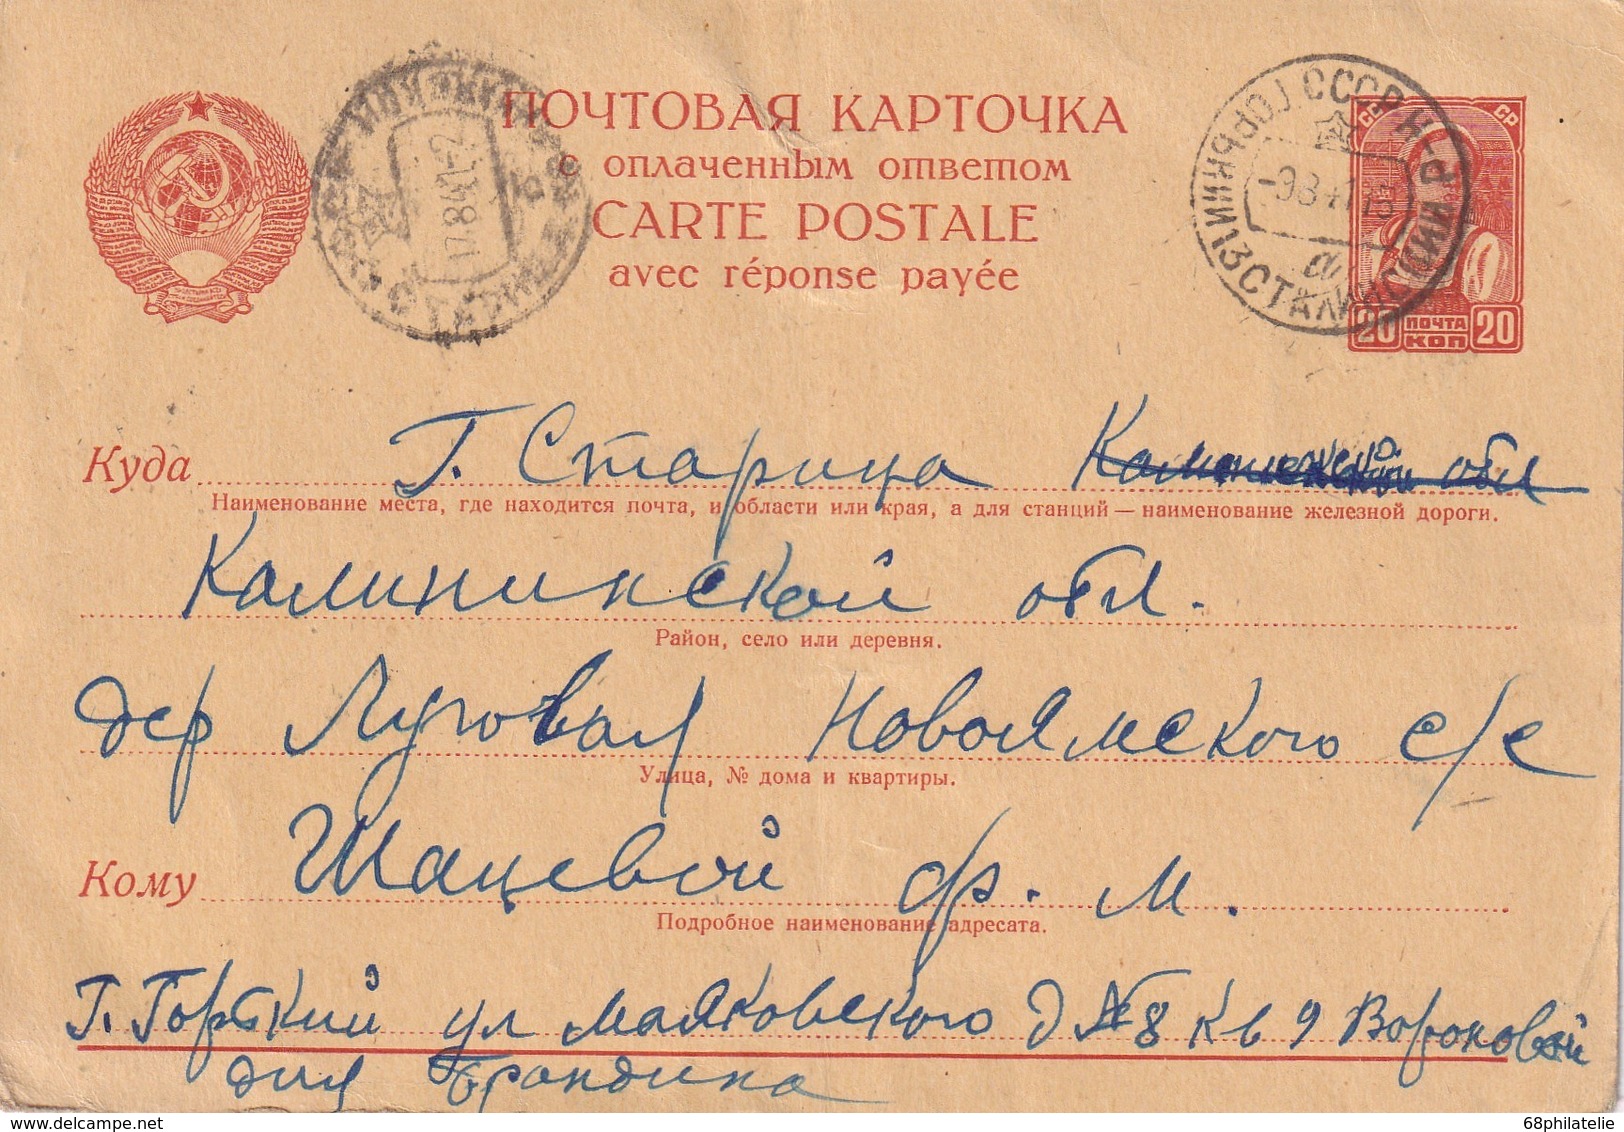 ПОЧТОВАЯ КАРТОЧКА
с оплаченным ответом
CARTE POSTALE
avec réponse payée
СССР
ПОЧТА
20 КОП 20
СССР
-9841
СТАРИЦА
17841-2
Куда Г. Старица обл
Наименование места, где находится почта, и области или края, а для станций — наименование железной дороги.
Калининской обл.
Район, село или деревня.
дер Луговая Новоямского с/с
Улица, № дома и квартиры.
Кому Шацевой ф. м.
Подробное наименование адресата.
г. Горький ул Маяковского д № 8 кв 9 Вороновой
для Брандина
68philatelie